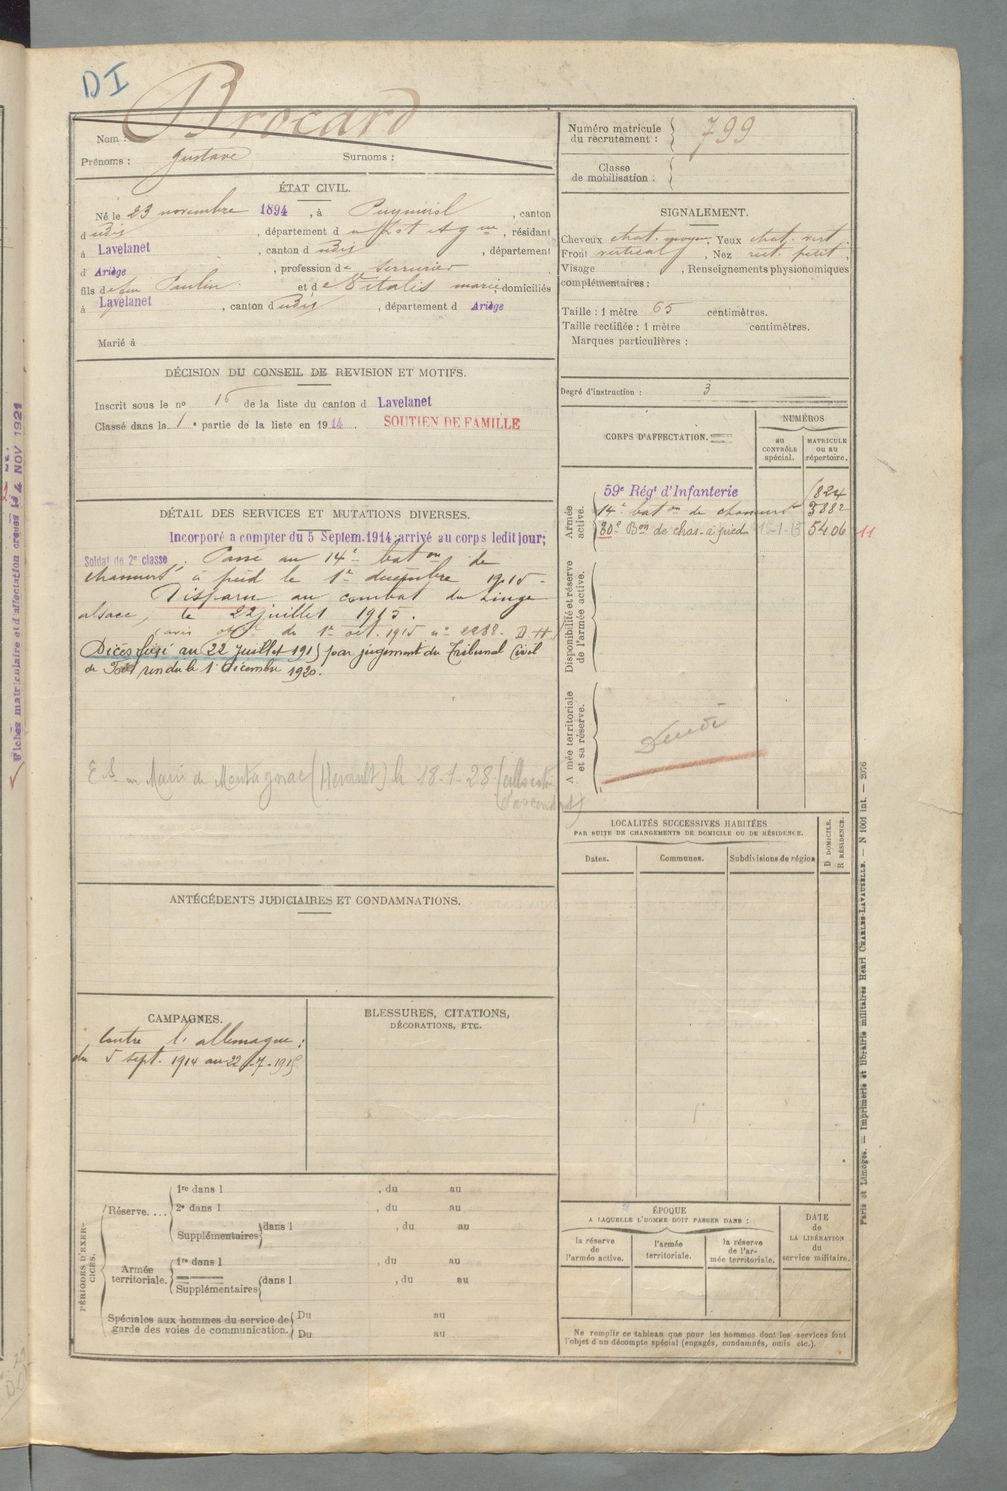 DI
Brocard
Nom :
Prénoms : Gustave Surnoms :
Numéro matricule
du recrutement : 799
Classe
de mobilisation :
ÉTAT CIVIL.
Né le 23 novembre 1894, à Puymirol, canton
d udis, département d Lot et Gne, résidant
à Lavelanet, canton d udis, département
d Ariège, profession de serrurier
fils de feu Paulin et de Vitalis marie domiciliés
à Lavelanet, canton d udis, département d Ariège
Marié à
SIGNALEMENT.
Cheveux chat. moyen, Yeux chat. vert,
Front vertical, Nez rect. petit,
Visage , Renseignements physionomiques
complémentaires :
Taille : 1 mètre 65 centimètres.
Taille rectifiée : 1 mètre centimètres.
Marques particulières :
Degré d'instruction : 3
DÉCISION DU CONSEIL DE REVISION ET MOTIFS.
Inscrit sous le no 16 de la liste du canton d Lavelanet
Classé dans la 1e partie de la liste en 1914. SOUTIEN DE FAMILLE
CORPS D'AFFECTATION.
NUMÉROS
AU CONTRÔLE spécial.
MATRICULE OU AU répertoire.
Armée active.
59e Régt d'Infanterie 1824
14e baton de chasseurs 5882
30e Bon de chas. à pied 5406 11
Disponibilité et réserve de l'armée active.
Armée territoriale et sa réserve.
DÉTAIL DES SERVICES ET MUTATIONS DIVERSES.
Incorporé a compter du 5 Septem. 1914 arrivé au corps ledit jour;
Soldat de 2e classe; Passé au 14e baton de
chasseurs à pied le 1er décembre 1915 -
Disparu au combat du Linge
alsace, le 22 juillet 1915.
(avis offel du 1er oct. 1915 no 2288. D H)
Décès fixé au 22 Juillet 1915 par jugement du Tribunal Civil
de Foix rendu le 1 Décembre 1920.
E.S. au Maire de Montagnac (Hérault) le 18-1-28 (
d'ascendants)
LOCALITÉS SUCCESSIVES HABITÉES
PAR SUITE DE CHANGEMENTS DE DOMICILE OU DE RÉSIDENCE.
Dates. Communes. Subdivisions de région
D DOMICILE.
R RÉSIDENCE.
ANTÉCÉDENTS JUDICIAIRES ET CONDAMNATIONS.
CAMPAGNES.
Contre l'allemagne :
du 5 sept. 1914 au 22-7-1915
BLESSURES, CITATIONS,
DÉCORATIONS, ETC.
PÉRIODES D'EXERCICES.
Réserve....
1re dans l , du au
2e dans l , du au
Supplémentaires dans l , du au
Armée territoriale.
1re dans l , du au
Supplémentaires dans l , du au
Spéciales aux hommes du service de
garde des voies de communication.
Du au
Du au
ÉPOQUE
A LAQUELLE L'HOMME DOIT PASSER DANS :
la réserve de l'armée active.
l'armée territoriale.
la réserve de l'armée territoriale.
DATE
de
LA LIBÉRATION
du
service militaire.
Ne remplir ce tableau que pour les hommes dont les services font
l'objet d'un décompte spécial (engagés, condamnés, omis etc.).
Paris et Limoges. — Imprimerie et librairie militaires Henri CHARLES-LAVAUZELLE. — N 1001 int. — 2076
Fiches matriculaire et d'affectation créées le 4 NOV 1921